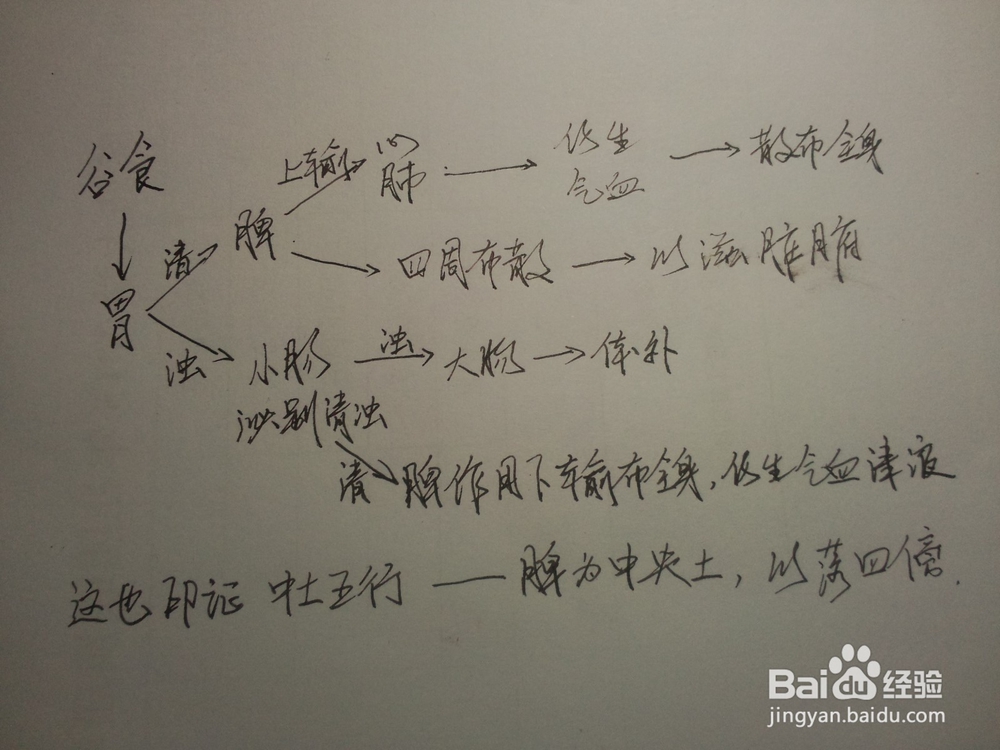 谷食
上输 心肺 → 化生气血 → 散布全身
清 脾
四周布散 → 以滋脏腑
胃
浊 小肠 浊 大肠 → 体外
泌别清浊
清 脾作用下输布全身，化生气血津液
这也印证 中土五行 —— 脾为中央土，以 四傍.
Baidu 经验
jingyan.baidu.com